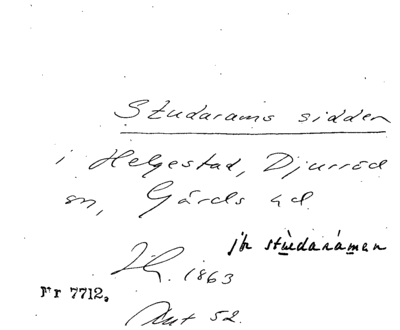 Studarams sidden
i Helgestad, Djurröd
sn, Gärds hd
jfr stùdaràmen
1863
Fr 7712.
Ant 52.